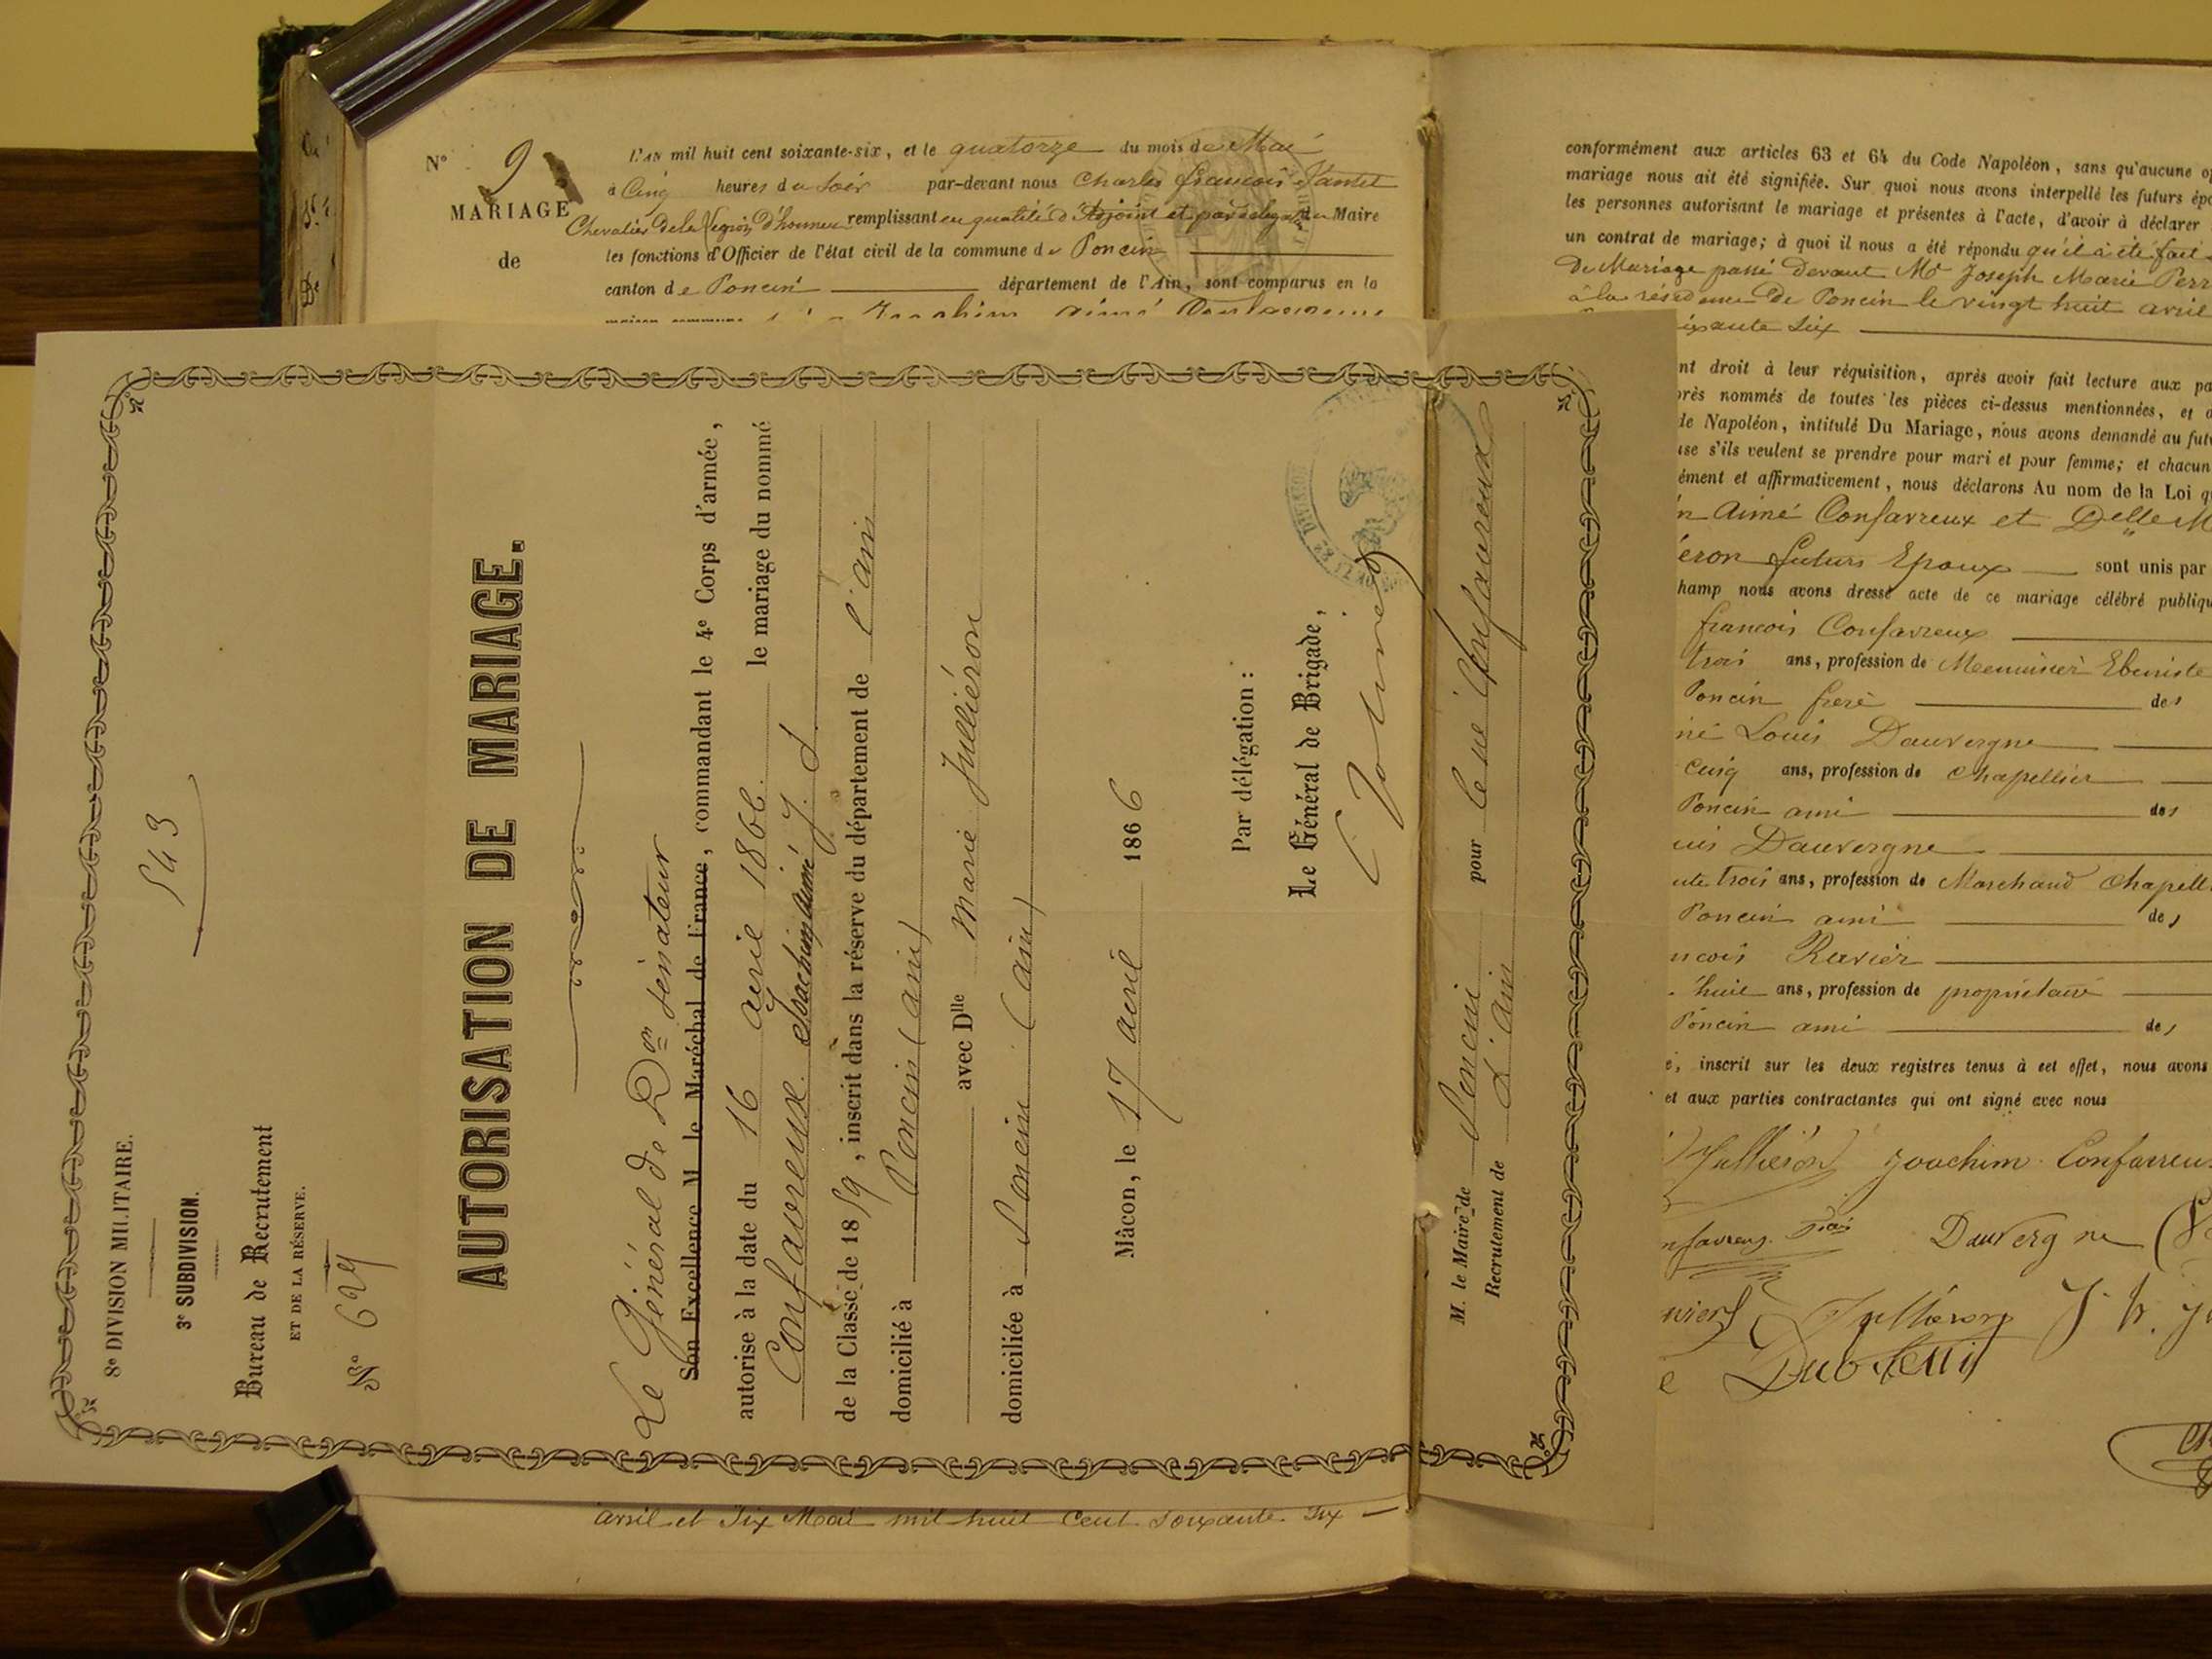 N° 9
MARIAGE
de
L'AN mil huit cent soixante-six, et le quatorze du mois de Mai
à Cinq heures du Soir par-devant nous Charles François
Chevalier de la Légion d'honneur remplissant en qualité d'Adjoint et par délégation du Maire
les fonctions d'Officier de l'état civil de la commune de Poncin
canton de Poncin département de l'Ain, sont comparus en la
maison commune Joachim Aimé Confavreux
8e DIVISION MILITAIRE.
3e SUBDIVISION.
Bureau de Recrutement
ET DE LA RÉSERVE.
N° 629
543
AUTORISATION DE MARIAGE.
Le Général de Don sénateur
Son Excellence M. le Maréchal de France, commandant le 4e Corps d'armée,
autorise à la date du 16 avril 1866 le mariage du nommé
Confavreux Joachim Aimé J. L.
de la Classe de 1859, inscrit dans la réserve du département de l'ain
domicilié à Poncin (ain)
avec Dlle Marie Julliéron
domiciliée à Poncin (ain)
Mâcon, le 17 avril 1866
Par délégation :
Le Général de Brigade,
M. le Maire de Poncin pour le né Confavreux
Recrutement de L'ain
avril et Six Mai mil huit Cent soixante Six
conformément aux articles 63 et 64 du Code Napoléon, sans qu'aucune
mariage nous ait été signifiée. Sur quoi nous avons interpellé les futurs
les personnes autorisant le mariage et présentes à l'acte, d'avoir à déclarer
un contrat de mariage; à quoi il nous a été répondu qu'il a été fait
de Mariage passé devant Me Joseph Marie
à la résidence de Poncin le vingt huit avril
ixante Six
nt droit à leur réquisition, après avoir fait lecture aux
près nommés de toutes les pièces ci-dessus mentionnées, et
de Napoléon, intitulé Du Mariage, nous avons demandé au
use s'ils veulent se prendre pour mari et pour femme; et chacun
ément et affirmativement, nous déclarons Au nom de la Loi
n Aimé Confavreux et Delle
éron futurs Epoux sont unis par
hamp nous avons dressé acte de ce mariage célébré
françois Confavreux
trois ans, profession de Menuisier Ebeniste
Poncin frère des
né Louis Dauvergne
cinq ans, profession de Chapellier
Poncin ami des
uis Dauvergne
nte trois ans, profession de Marchand Chapell
Poncin ami des
ncois Ravier
huit ans, profession de propriétaire
Poncin ami des
e, inscrit sur les deux registres tenus à cet effet, nous avons
et aux parties contractantes qui ont signé avec nous
Julliéron Joachim Confavreux
Dauvergne
Julliéron